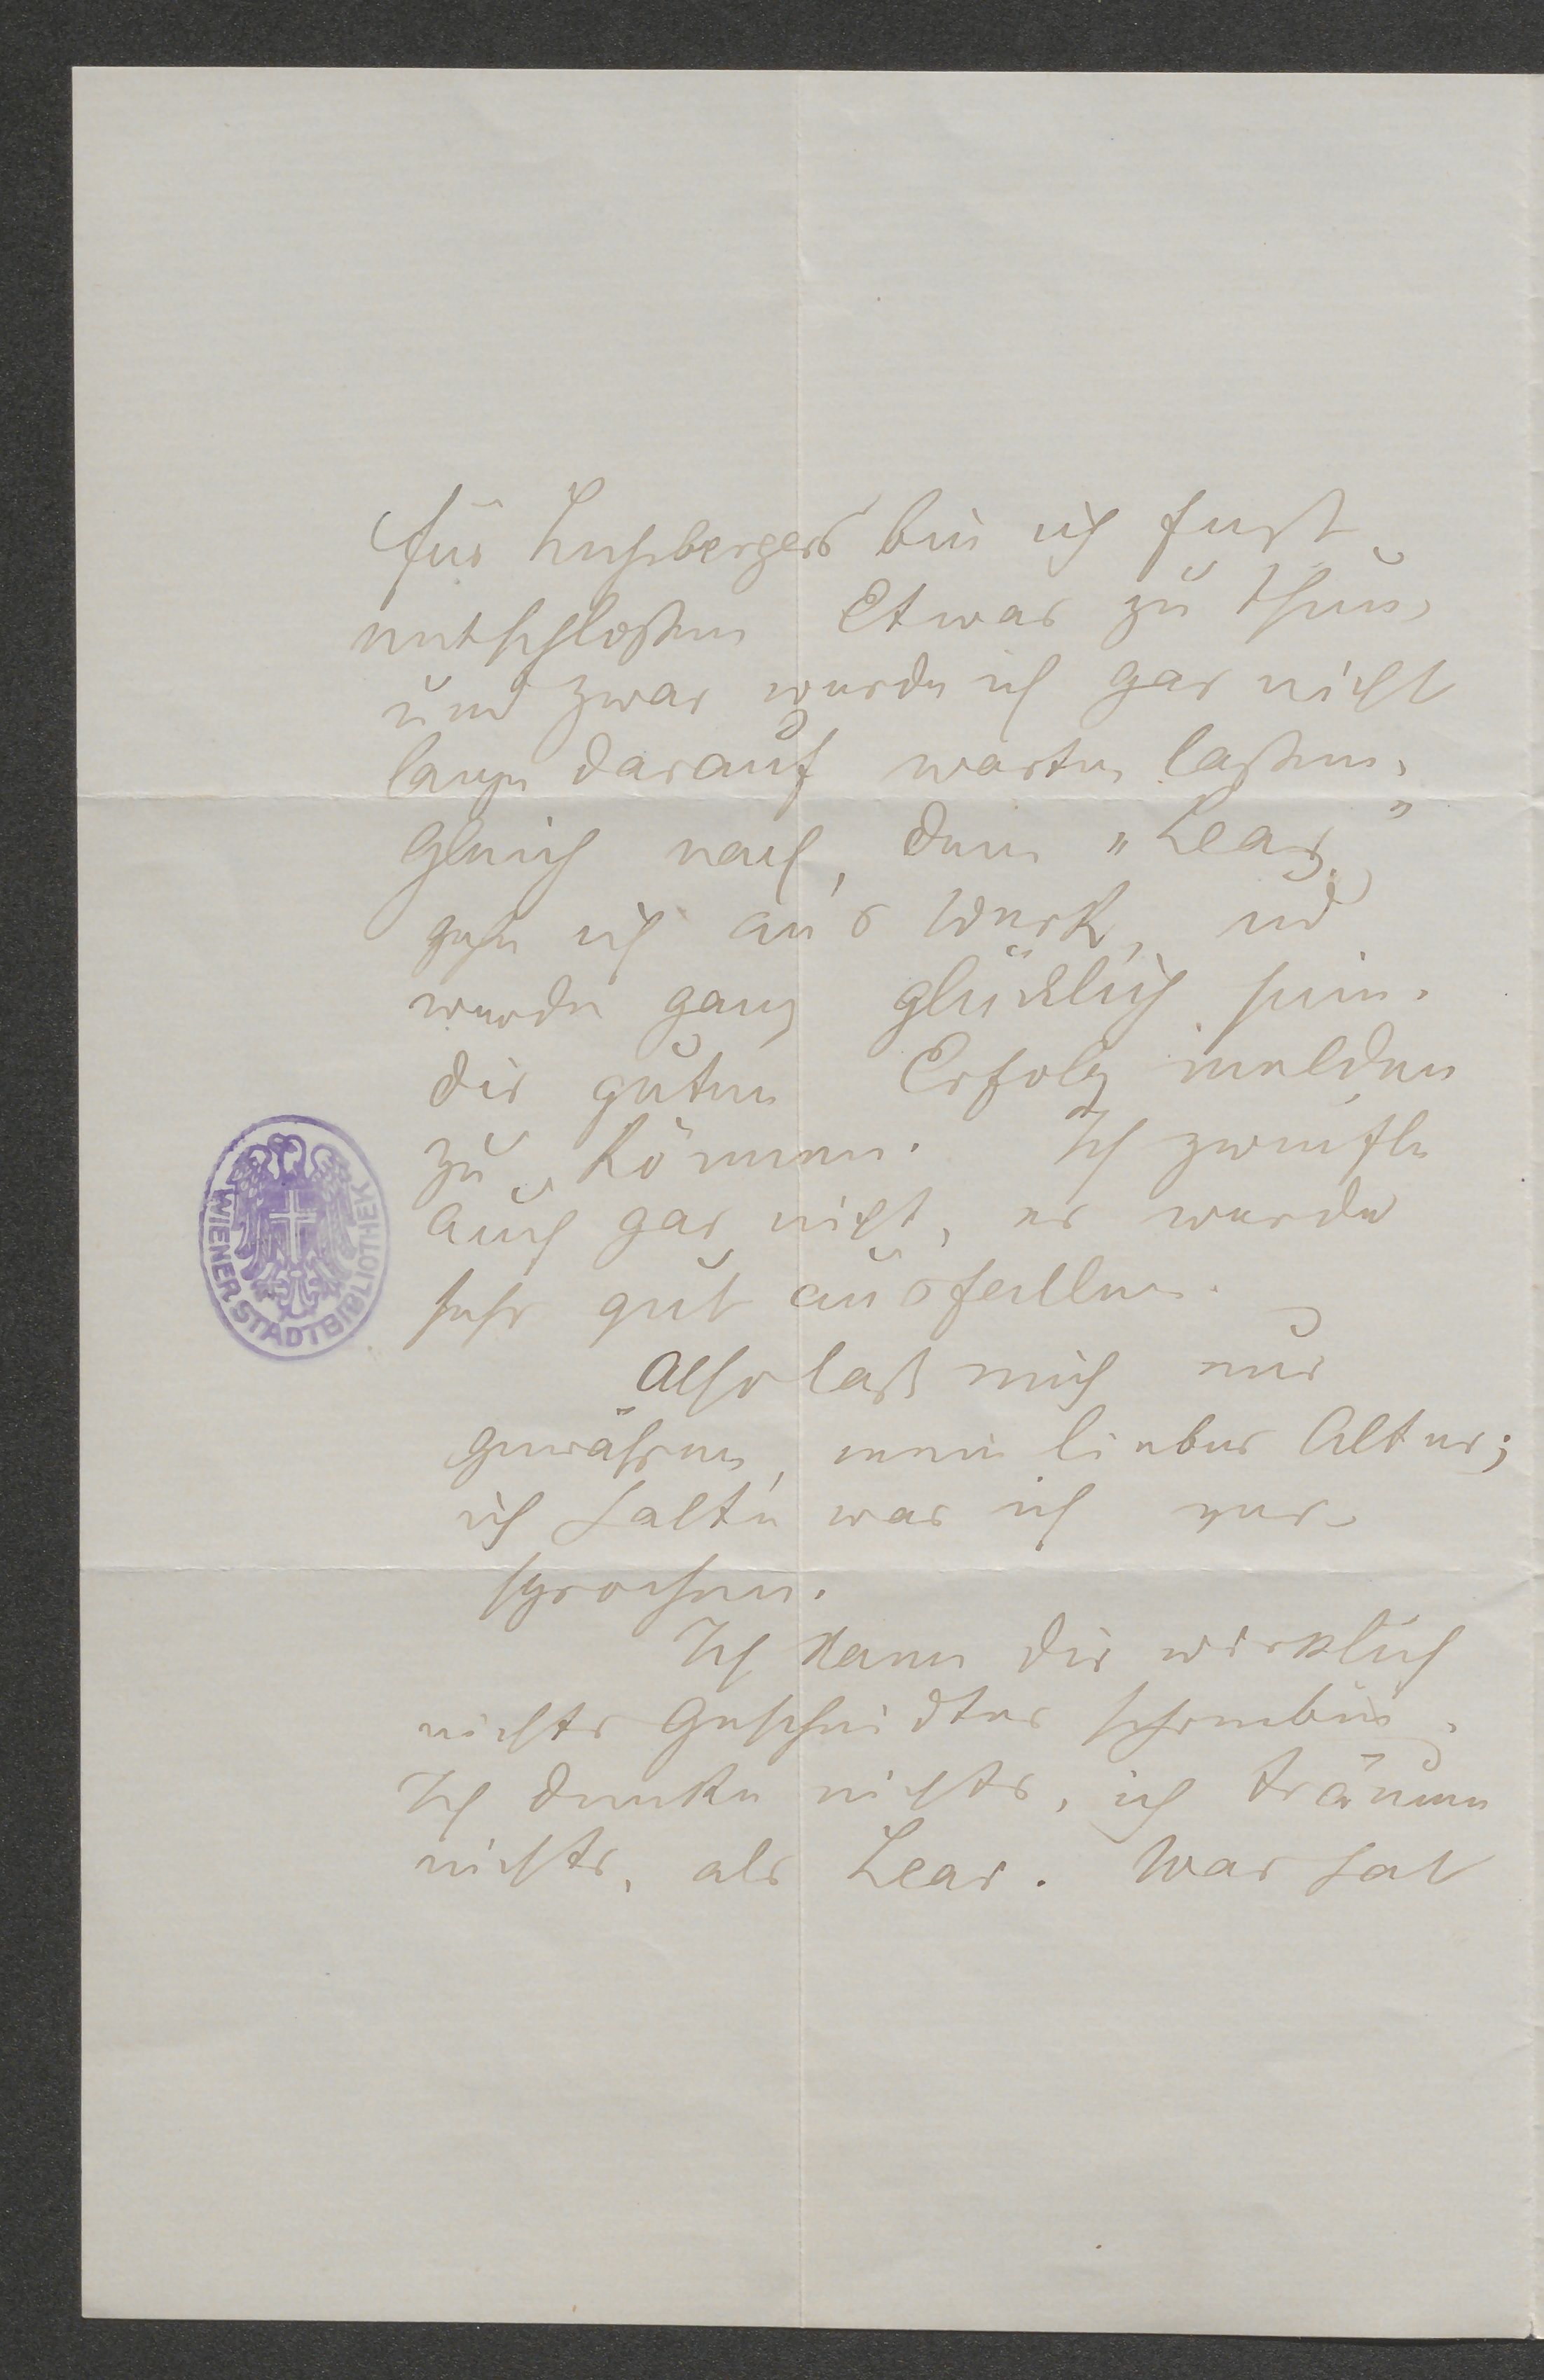 Für Lehsbergers bin ich fest
entschloßen Etwas zu thun,
und zwar werde ich gar nicht
lange darauf warten laßen,
gleich nach dem „Lear"
gehe ich an's Werk, ud
werde ganz glücklich sein.
dir guten Erfolg melden
zu können. Ich zweifle
auch gar nicht, es werde
sehr gut ausfallen.
Also laß mich nur
gewähren, mein lieber Alter;
ich halte was ich ver-
sprochen.
Ich kann dir wirklich
nichts Gescheidtes schreiben,
Ich denke nichts, ich träume
nichts, als Lear. Was hat
WIENER STADTBIBLIOTHEK